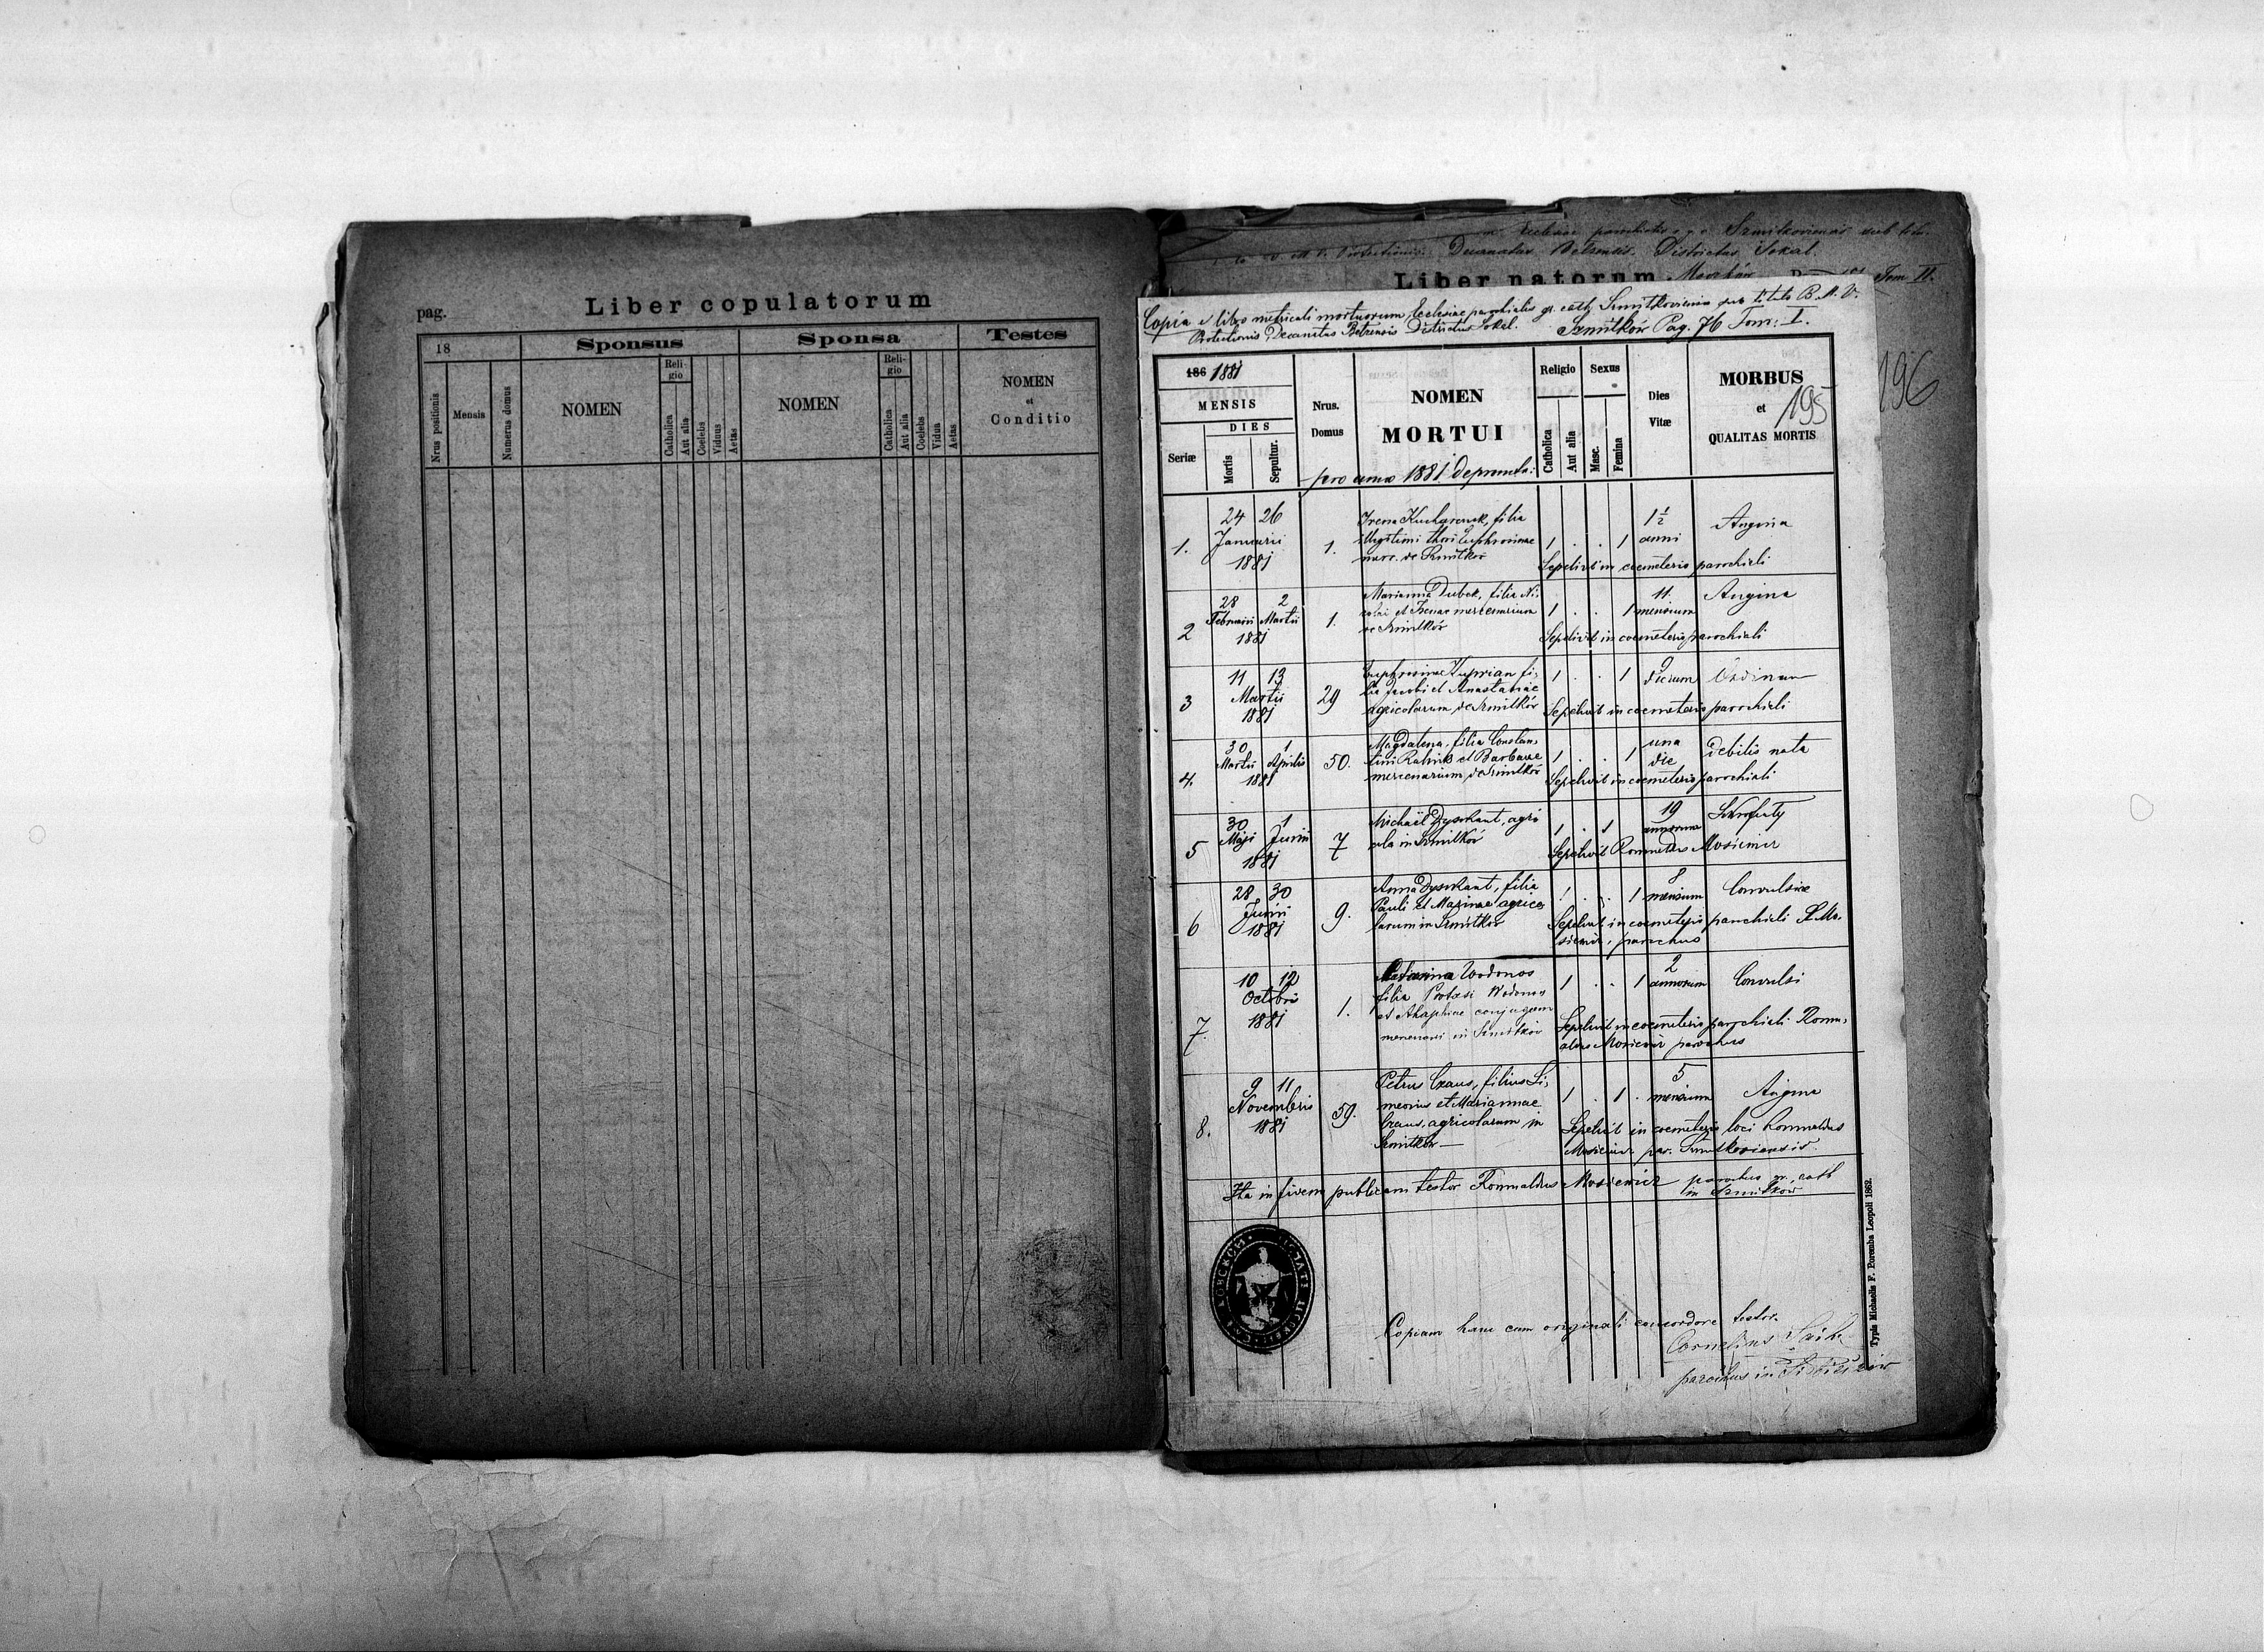 pag.
Liber copulatorum
18
Sponsus
Sponsa
Testes
Nrus positionis
Mensis
Numerus domus
NOMEN
Religio
Catholica
Aut alia
Coelebs
Viduus
Aetas
NOMEN
Religio
Catholica
Aut alia
Coelebs
Vidua
Aetas
NOMEN
et
Conditio
Ecclesiae parochialis Szmitkoviensis sub tit.
Protectionis Decanatus Belzensis Districtus Sokal.
Liber natorum Tom II.
196
Copia e libro metricali mortuorum Ecclesiae parochialis gr. cath. Szmitkoviensis sub titulo B. M. V.
Protectionis, Decanatus Belzensis Districtus Sokal. Szmitków Pag. 76 Tom: I.
186 1881
MENSIS
DIES
Seriæ
Mortis
Sepultur.
Nrus.
Domus
NOMEN
MORTUI
pro anno 1881 deprompta:
Religio
Catholica
Aut alia
Sexus
Masc.
Femina
Dies
Vitæ
MORBUS
et
QUALITAS MORTIS
195
24 26
Januarii
1881
1. 1.
Irena Kucharuk, filia
thori Euphrosinae
de Szmitków
1 . . 1
1 1/2
anni
Angina
Sepelivit in coemeterio parochiali
28 2
Februarii Martii
1881
2 1.
Marianna Dubek, filia Ni-
colai et Irenae mercenarium
de Szmitków
1 . . 1
11
mensium
Angina
Sepelivit in coemeterio parochiali
11 13
Martii
1881
3 29
Euphrosina Kuprian fi-
lia Jacobi et Anastasiae
agricolarum de Szmitków
1 . . 1
9
dierum
Sepelivit in coemeterio parochiali
30 1
Martii Aprilis
1881
4. 50.
Magdalena, filia Constan-
tini Ratnik et Barbarae
mercenarium de Szmitków
1 . . 1
una
die
debilis nata
Sepelivit in coemeterio parochiali
30 1
Maji Junii
1881
5 7
Michaël Dyschant, agri-
cola in Szmitków
1 . 1
19
annorum
Skrofuly
Sepelivit Romualdus Mosiewicz
28 30
Junii
1881
6 9.
Anna Dyschant, filia
Pauli et Marinae agrico-
larum in Szmitków
1 . . 1
8
mensium
Convulsiae
Sepelivit in coemeterio parochiali R. Mo-
siewicz, parochus
10 12
Octobris
1881
7. 1.
Wodonos
filia Protasi Wodonos
et Ahaphiae conjugum
mercenarii in Szmitków
1 . . 1
2
annorum
Convulsi
Sepelivit in coemeterio parochiali Romu-
aldus Mosiewicz parochus
9 11
Novembris
1881
8. 59.
Petrus Czaus, filius Si-
meonis et Mariannae
Czaus, agricolarum in
Szmitków
1 . 1 .
5
mensium
Angina
Sepelivit in coemeterio loci Romualdus
Mosiewicz par. Szmitkoviensis
Ita in fidem publicam testor Romualdus Mosiewicz parochus gr. cath
in Szmitków
Copiam hanc cum originali concordare testor.
Cornelius
parochus in
Typis Michaelis F. Poremba Leopoli 1862.